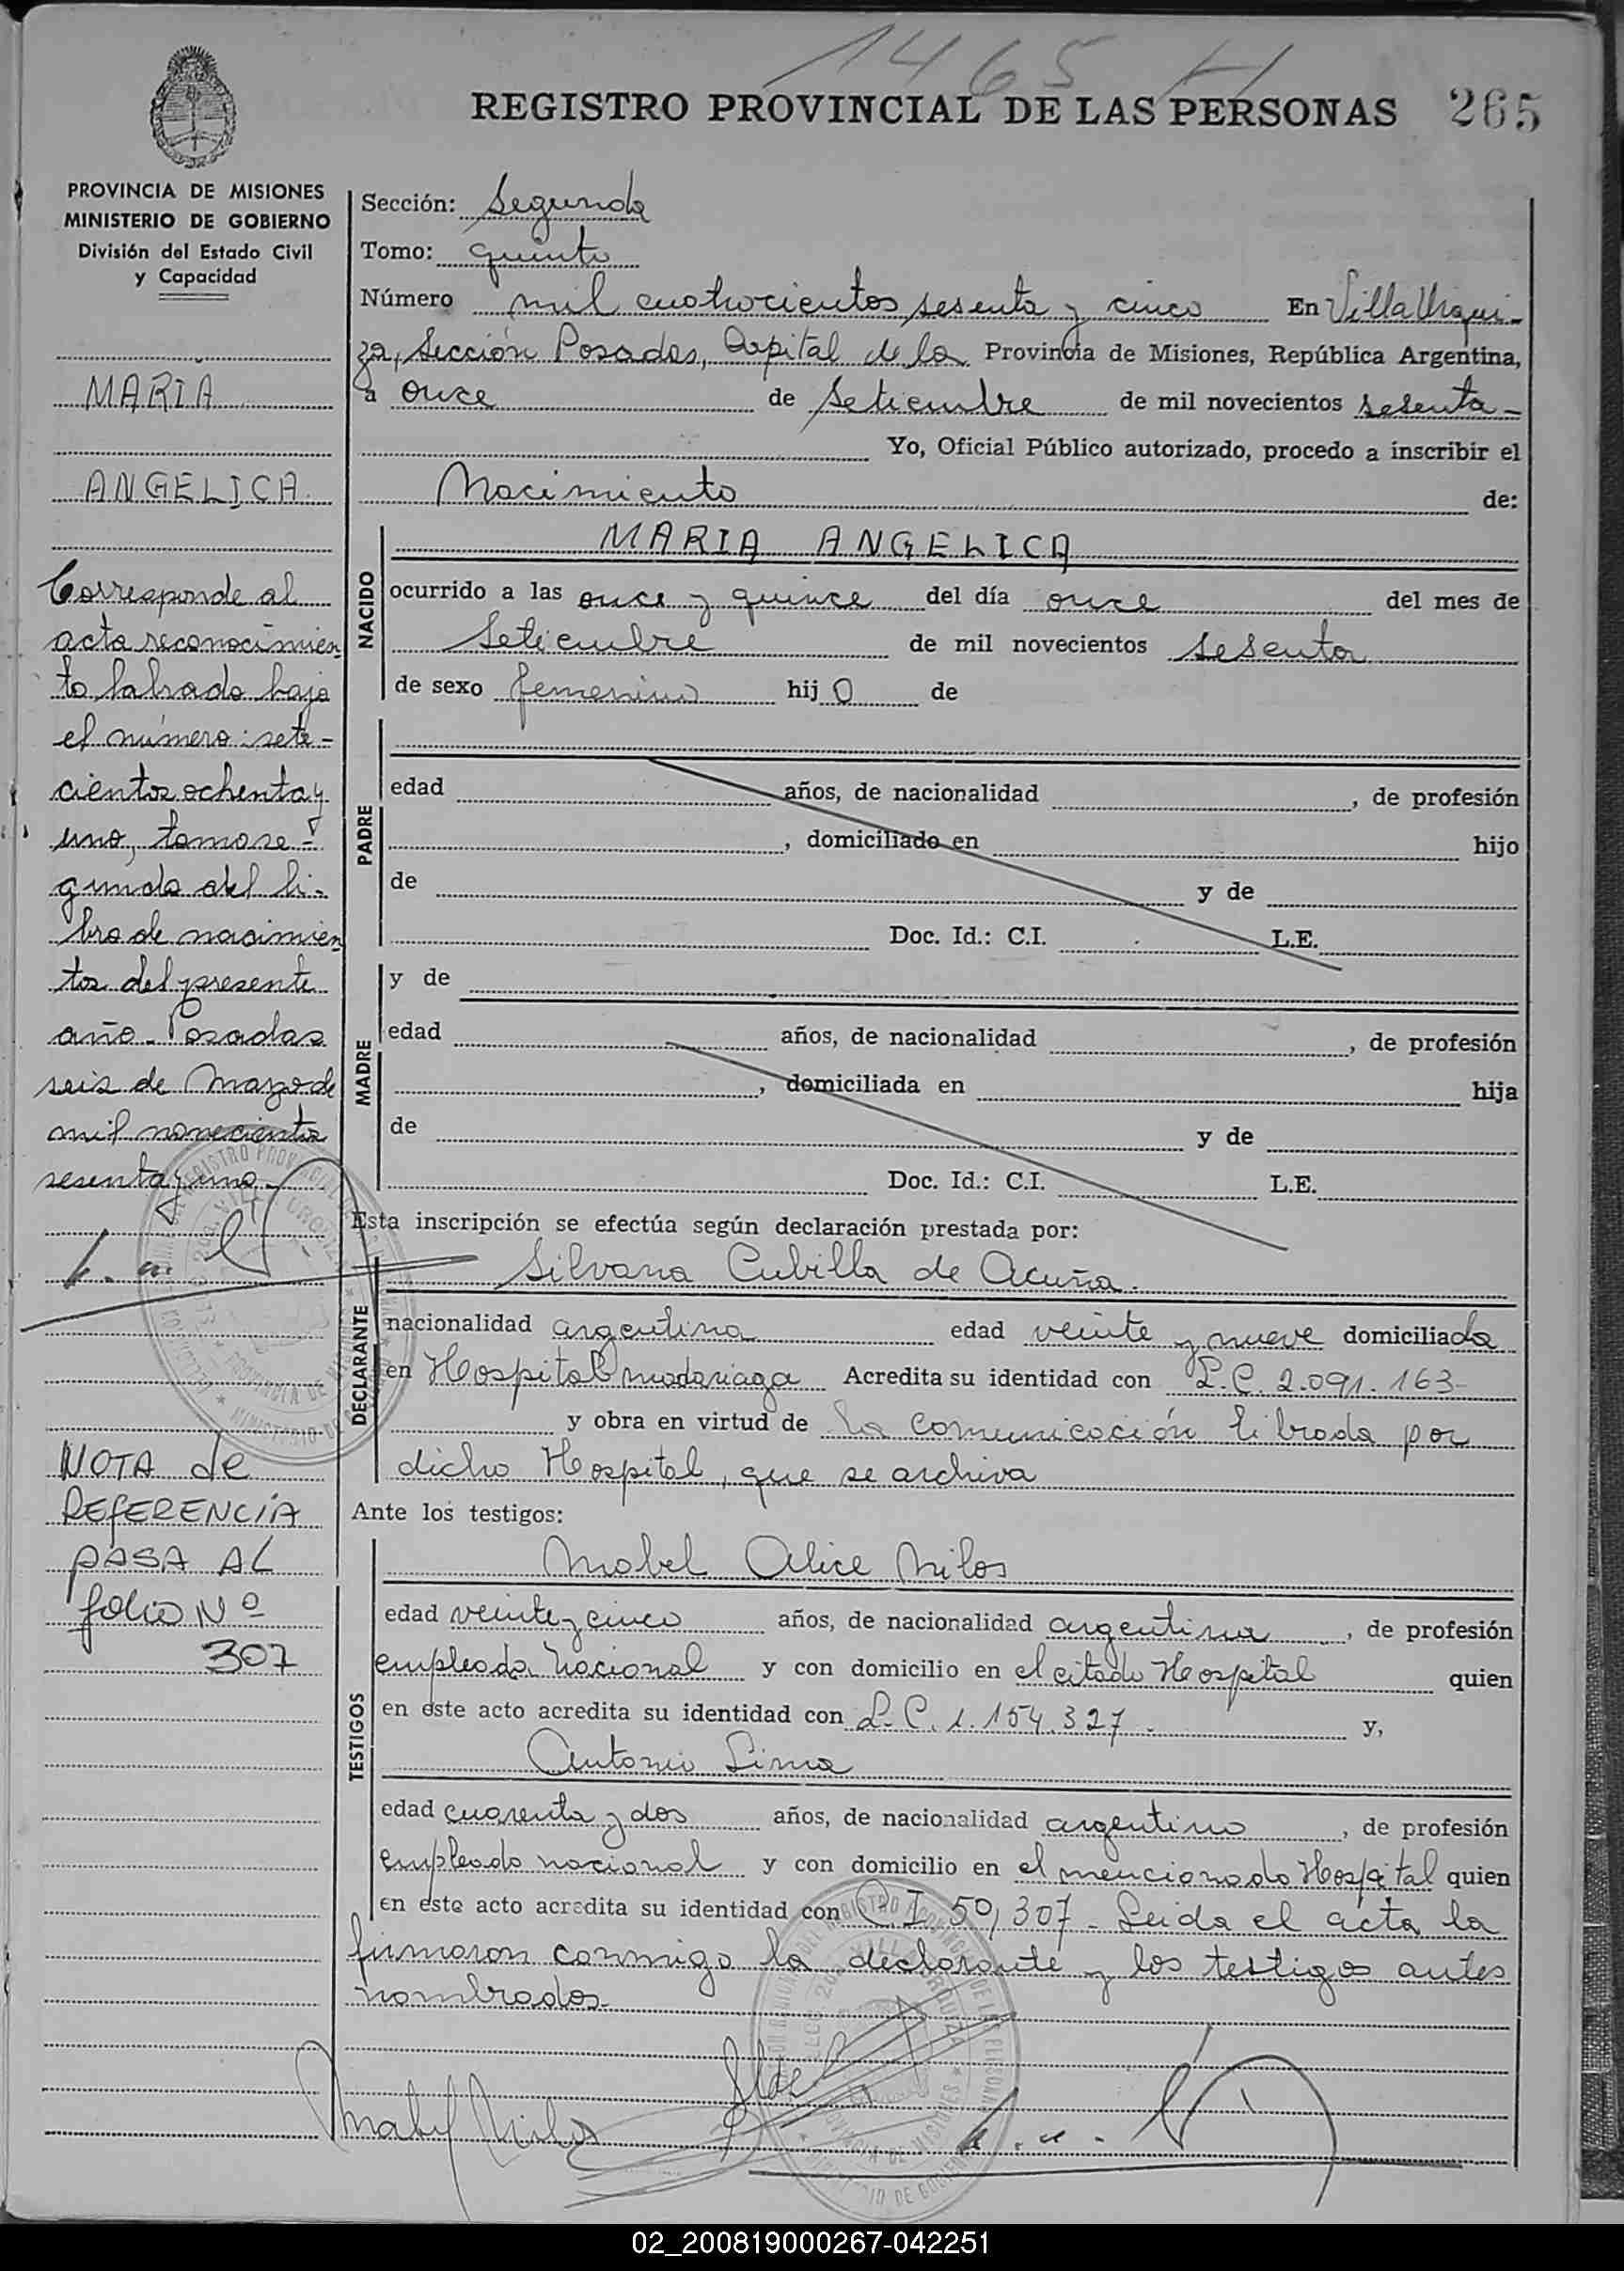 1465 H
REGISTRO PROVINCIAL DE LAS PERSONAS 265
PROVINCIA DE MISIONES
MINISTERIO DE GOBIERNO
División del Estado Civil
y Capacidad
MARIA
ANGELICA
Corresponde al
acta reconocimien
to labrada bajo
el número: sete-
cientos ochenta y
uno, tomo se-
gundo del li-
bro de nacimien
tos del presente
año. Posadas
seis de Marzo de
mil novecientos
sesenta y uno.
NOTA de
REFERENCIA
PASA AL
folio Nº
307
Sección: Segunda
Tomo: quinto
Número mil cuatrocientos sesenta y cinco En Villa Urqui-
za, Sección Posadas, Capital de la Provincia de Misiones, República Argentina,
a once de Setiembre de mil novecientos sesenta-
Yo, Oficial Público autorizado, procedo a inscribir el
Nacimiento de:
NACIDO
MARIA ANGELICA
ocurrido a las once y quince del día once del mes de
Setiembre de mil novecientos sesenta
de sexo femenino hij o de
PADRE
edad años, de nacionalidad , de profesión
, domiciliado en hijo
de y de
Doc. Id.: C.I. L.E.
MADRE
y de
edad años, de nacionalidad , de profesión
, domiciliada en hija
de y de
Doc. Id.: C.I. L.E.
Esta inscripción se efectúa según declaración prestada por:
DECLARANTE
Silvana Cubilla de Acuña.
nacionalidad argentina edad veinte y nueve domiciliada
en Hospital Madariaga Acredita su identidad con L.C. 2.091.163-
y obra en virtud de la comunicación librada por
dicho Hospital, que se archiva
Ante los testigos:
TESTIGOS
Mabel Alice Milos
edad veinte y cinco años, de nacionalidad argentina , de profesión
empleada nacional y con domicilio en el citado Hospital quien
en este acto acredita su identidad con L.C. 1.154.327. y,
Antonio Lima
edad cuarenta y dos años, de nacionalidad argentino , de profesión
empleado nacional y con domicilio en el mencionado Hospital quien
en este acto acredita su identidad con C I 50,307- Leida el acta, la
firmaron conmigo la declarante y los testigos antes
nombrados.
Mabel Milos
02_200819000267-042251